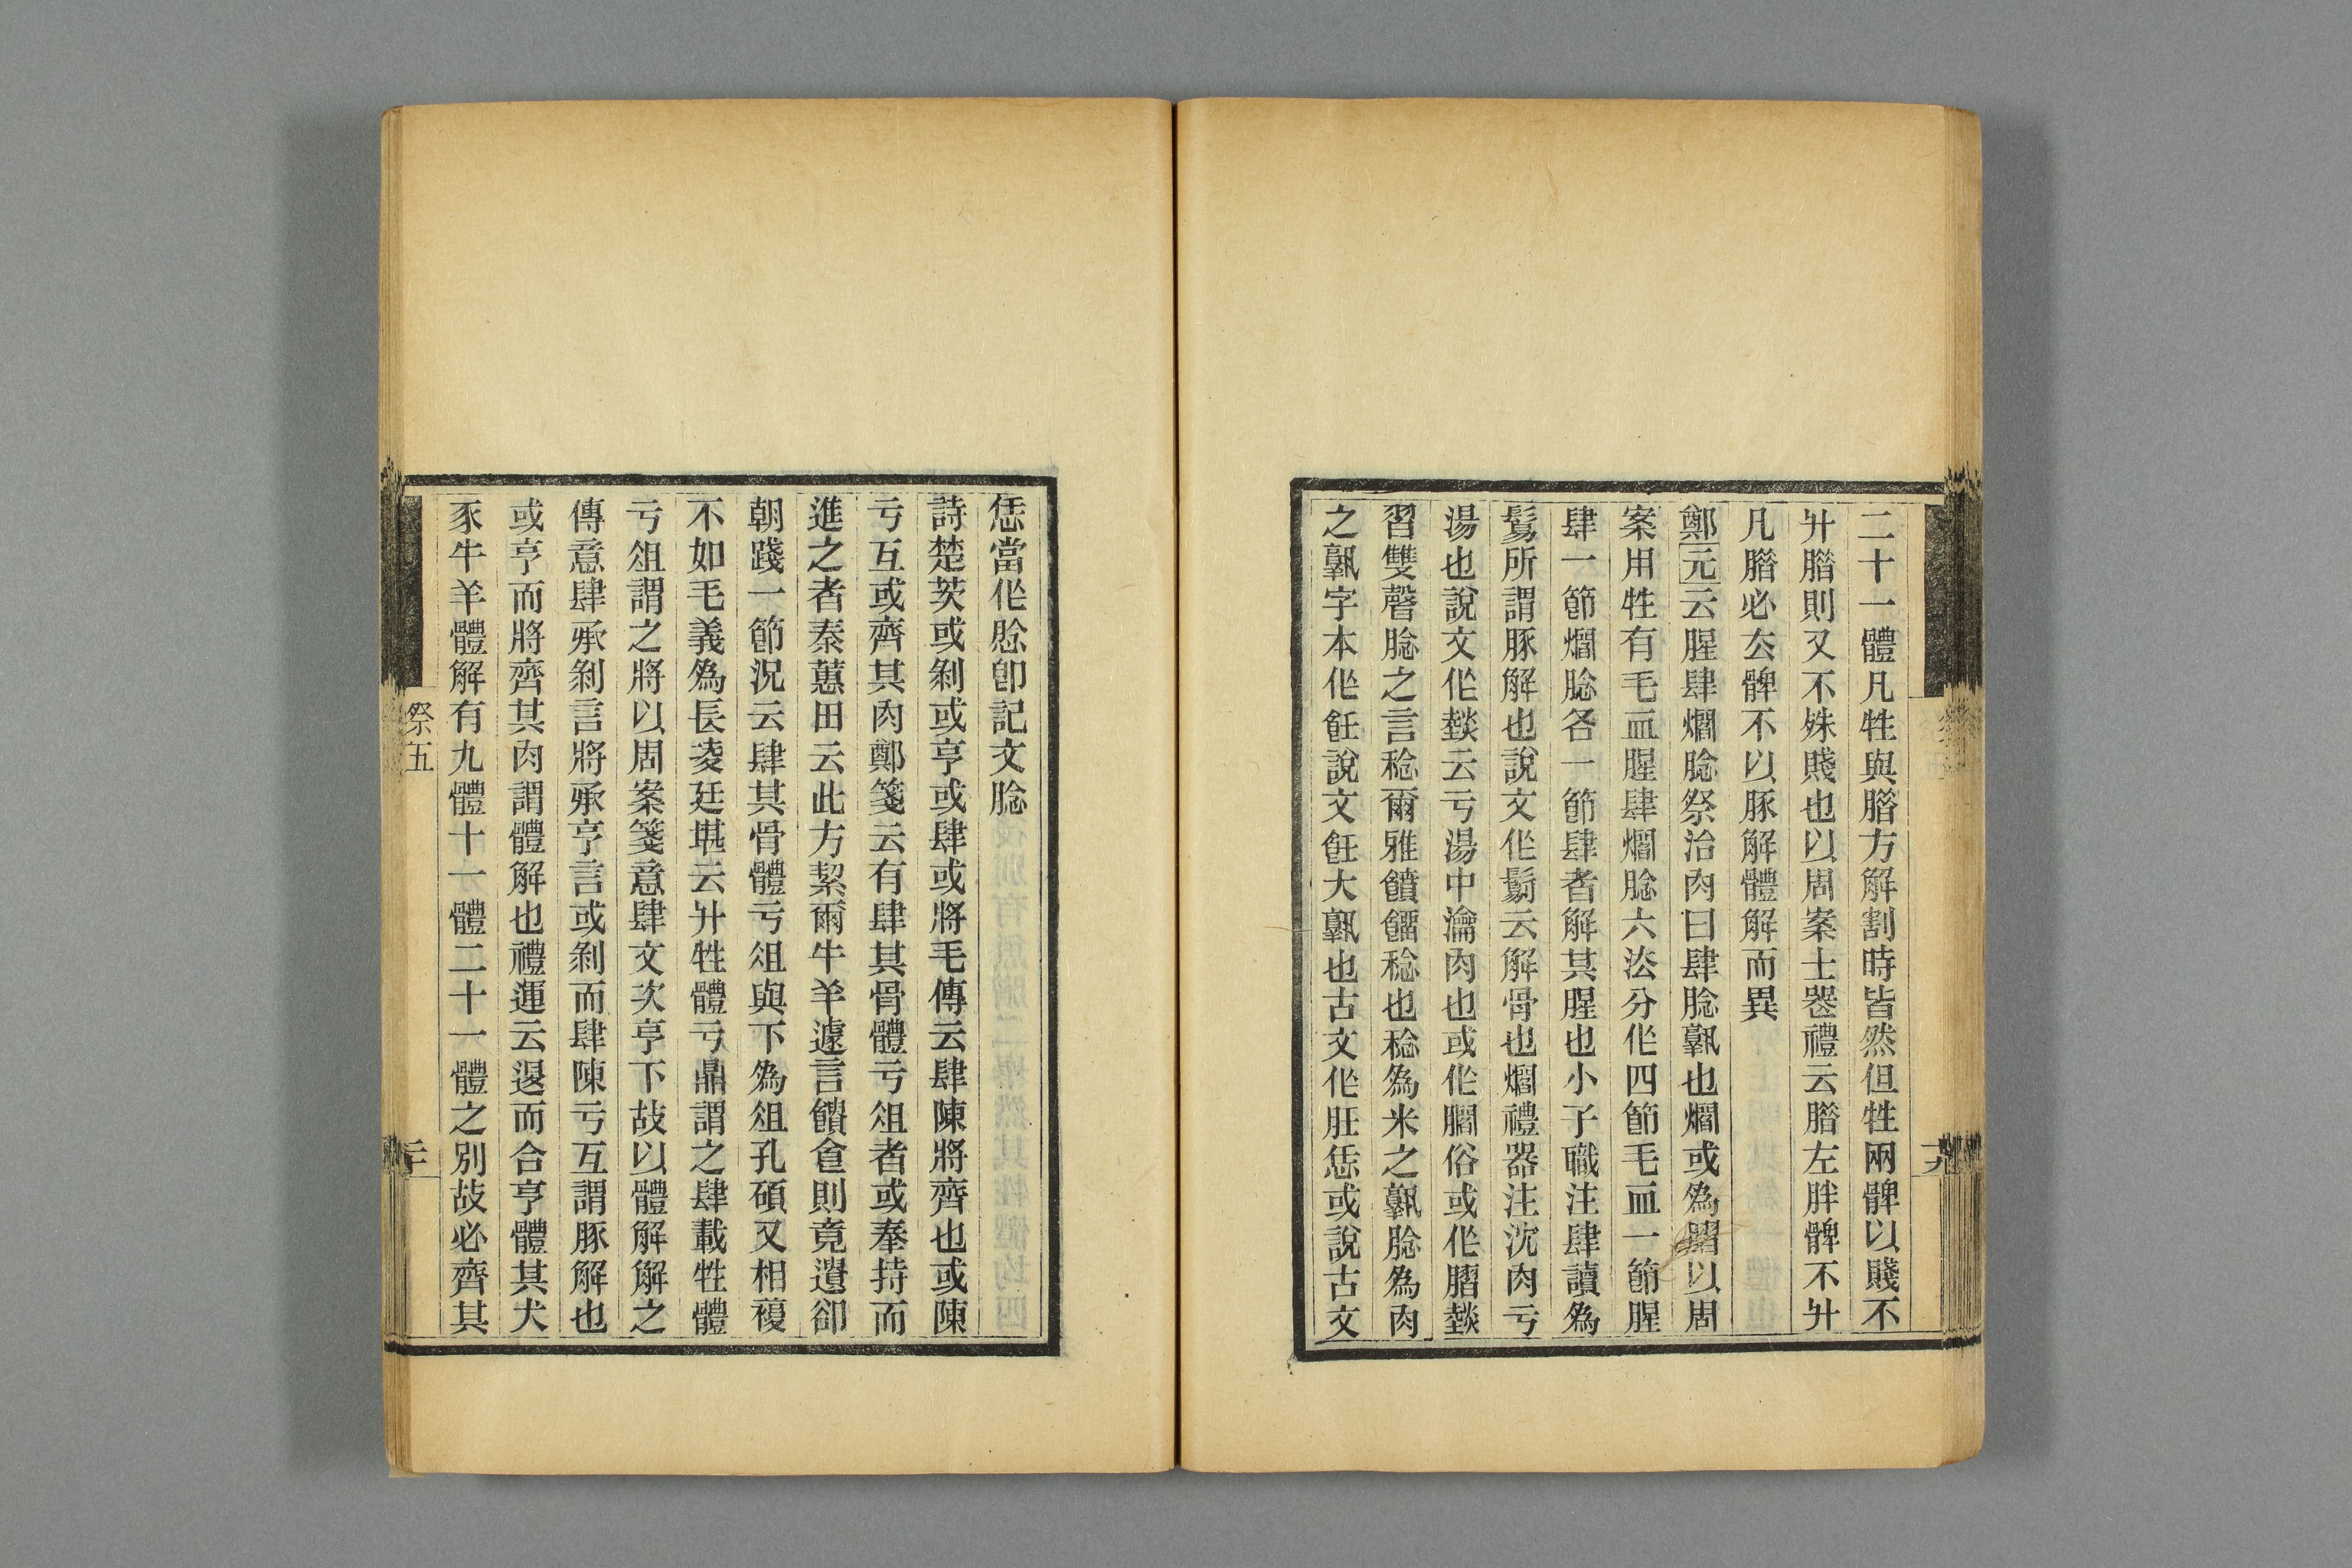 二十一體凡牲與腊方解割時皆然但牲兩髀以賤不
升腊則又不殊賤也以周案士喪禮云腊左胖髀不升
凡腊必厺髀不以豚解體解而異
鄭元云腥肆爓腍祭治肉曰肆腍孰也爓或爲䐑以周
案用牲有毛血腥肆爓腍六法分作四節毛血一節腥
肆一節爓腍各一節肆者解其腥也小子職注肆讀爲
鬄所謂豚解也說文作鬄云解骨也爓禮器注沈肉亏
湯也說文作㷋云亏湯中瀹肉也或作爓俗或作䐑㷋
習雙聲腍之言稔爾雅饙餾稔也稔爲米之孰腍爲肉
之孰字本作飪說文飪大孰也古文作肚恁或說古文
恁當作腍卽記文腍
詩楚茨或剝或亨或肆或將毛傳云肆陳將齊也或陳
亏互或齊其肉鄭箋云有肆其骨體亏俎者或奉持而
進之者秦蕙田云此方絜爾牛羊遽言饋食則竟遺卻
朝踐一節況云肆其骨體亏俎與下爲俎孔碩又相複
不如毛義爲長凌廷堪云升牲體亏鼎謂之肆載牲體
亏俎謂之將以周案箋意肆文次亨下故以體解解之
傳意肆承剝言將承亨言或剝而肆陳亏互謂豚解也
或亨而將齊其肉謂體解也禮運云退而合亨體其犬
豕牛羊體解有九體十一體二十一體之別故必齊其
祭五